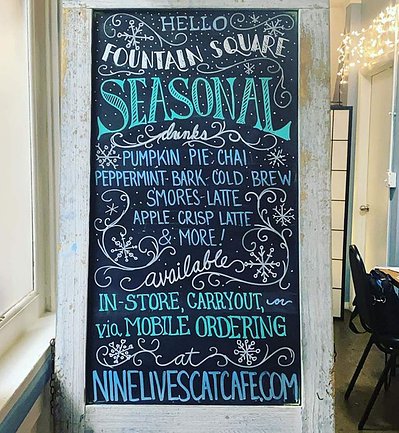 HELLO
FOUNTAIN SQUARE
SEASONAL
drinks
PUMPKIN · PIE · CHAI
PEPPERMINT · BARK · COLD · BREW
SMORES · LATTE
APPLE · CRISP LATTE
& MORE!
available
IN-STORE, CARRYOUT, or
via MOBILE ORDERING
at
NINELIVESCATCAFE.COM